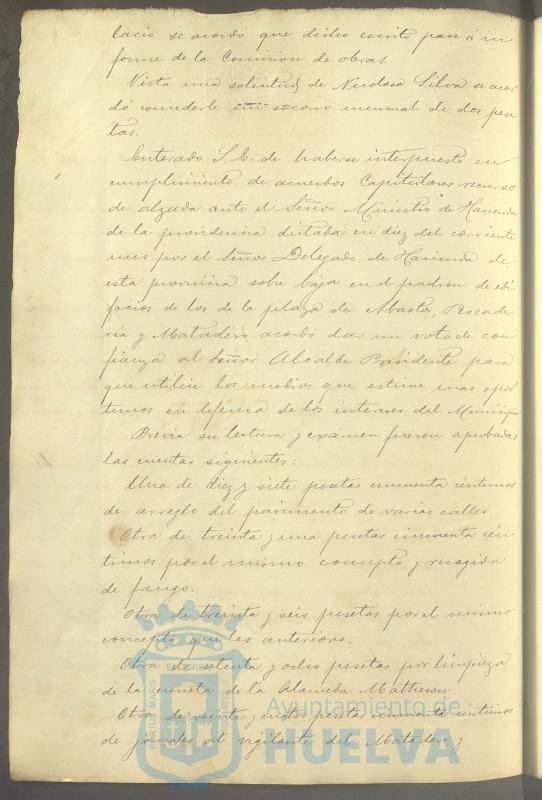 lacio se acordó que dicho escrito pase á in
forme de la Comision de obras.
Vista una solicitud de Nicolasa Silva se acor
dó concederle un socorro mensual de dos pese
tas.
Enterado S. E. de haberse interpuesto en
cumplimiento de acuerdos Capitulares recurso
de alzada ante el Señor Ministro de Hacienda
de la providencia dictada en diez del corriente
mes por el Señor Delegado de Hacienda de
esta provincia sobre baja en el padron de edi
ficios de los de la plaza de Abastos, Pescade
ría y Matadero acordó dar un voto de con
fianza al Señor Alcalde Presidente para
que utilice los medios que estime mas opor
tunos en defensa de los intereses del Municipio
Prévia su lectura y exámen fueron aprobadas
las cuentas siguientes:
Una de diez y siete pesetas cincuenta céntimos
de arreglo del pavimento de varias calles.
Otra de treinta y una pesetas cincuenta cén
timos por el mismo concepto y recogida
de fango.
Otra de treinta y seis pesetas por el mismo
concepto que las anteriores.
Otra de setenta y ocho pesetas por limpieza
de la cuneta de la Alameda Matheson
Otra de veinte y cuatro pesetas cincuenta céntimos
de jornales al vigilante del Matadero y
PORTUS MARIS ET TERRAE CUSTODIA
Ayuntamiento de
HUELVA